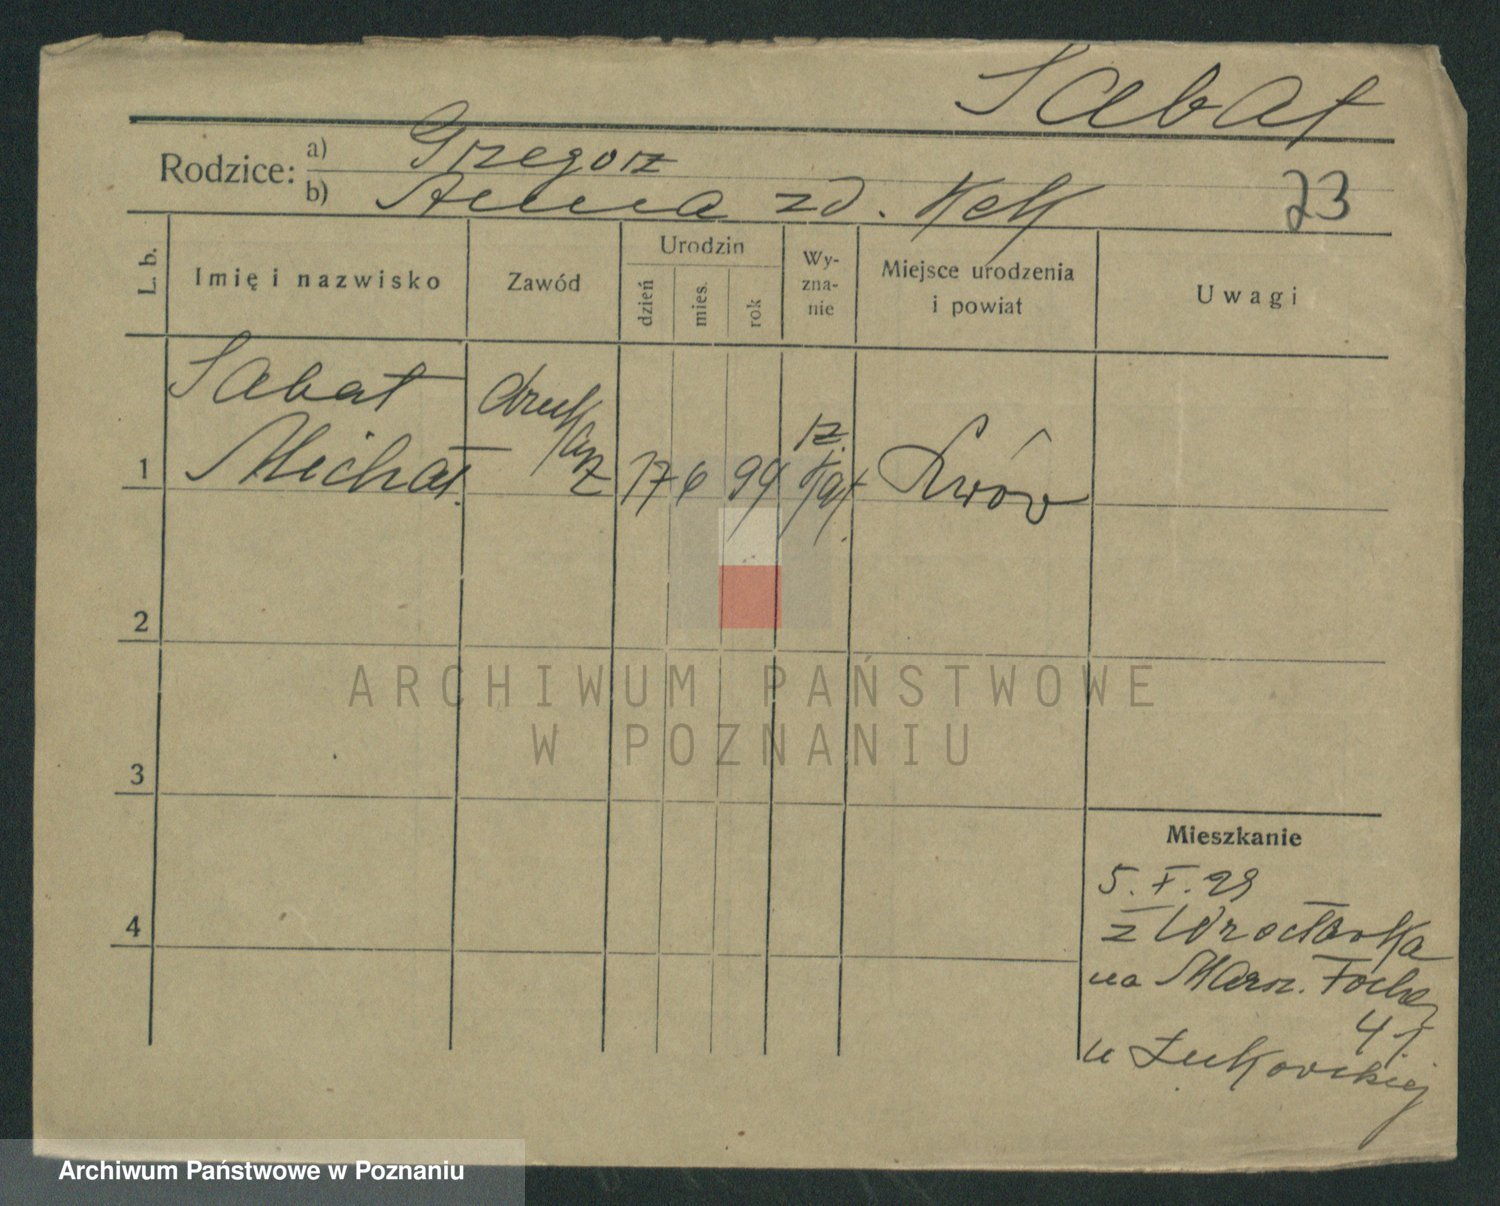 Sabat
Rodzice: a) Grzegorz
b) Anna zd. Kek
23
L. b.
Imię i nazwisko
Zawód
Urodzin
dzień
mies.
rok
Wy-
zna-
nie
Miejsce urodzenia
i powiat
Uwagi
1
Sabat
Michał
druk
arz
17
6
99
rz.
kat.
Lwów
2
3
4
ARCHIWUM PAŃSTWOWE
W POZNANIU
Mieszkanie
5. X. 29
z Wrocławka
na Marsz. Focha
41
u Żukowskiej
Archiwum Państwowe w Poznaniu